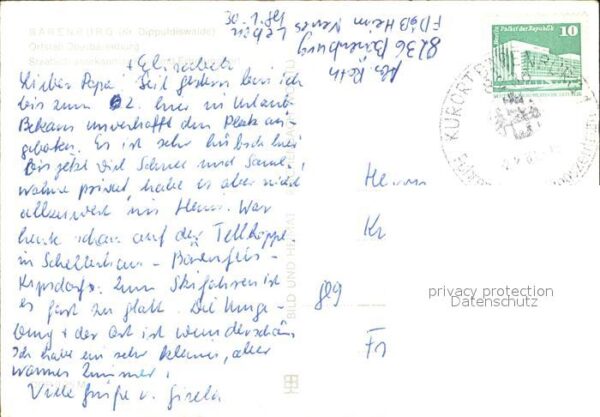 BÄRENBURG (Kr. Dippoldiswalde)
Ortsteil Oberbärenburg
+ Elisabeth
Lieber Papa! Seit gestern bin ich
bis zum 2. hier in Urlaub
Bekam unverhofft den Platz an-
geboten. Es ist sehr hübsch hier
Bis jetzt viel Schnee und Sonne,
wohne privat, habe es aber nicht
allzuweit ins Heim. War
heute schon auf der Tellkoppe
in Schellerhau - Bärenfels -
Kipsdorf. Zum Skifahren ist
es fast zu glatt. Die Umge-
bung + der Ort ist wunderschön
Ich habe ein sehr kleines, aber
warmes Zimmer!
Viele Grüße v. Gisela
Abs. Kr
8236 Bärenburg
FDGB Heim Neues
Leben
BILD UND HEIMAT
Palast der Republik
10
DDR
KURORT BÄRENBURG
Herrn
Kr
Fr
privacy protection
Datenschutz